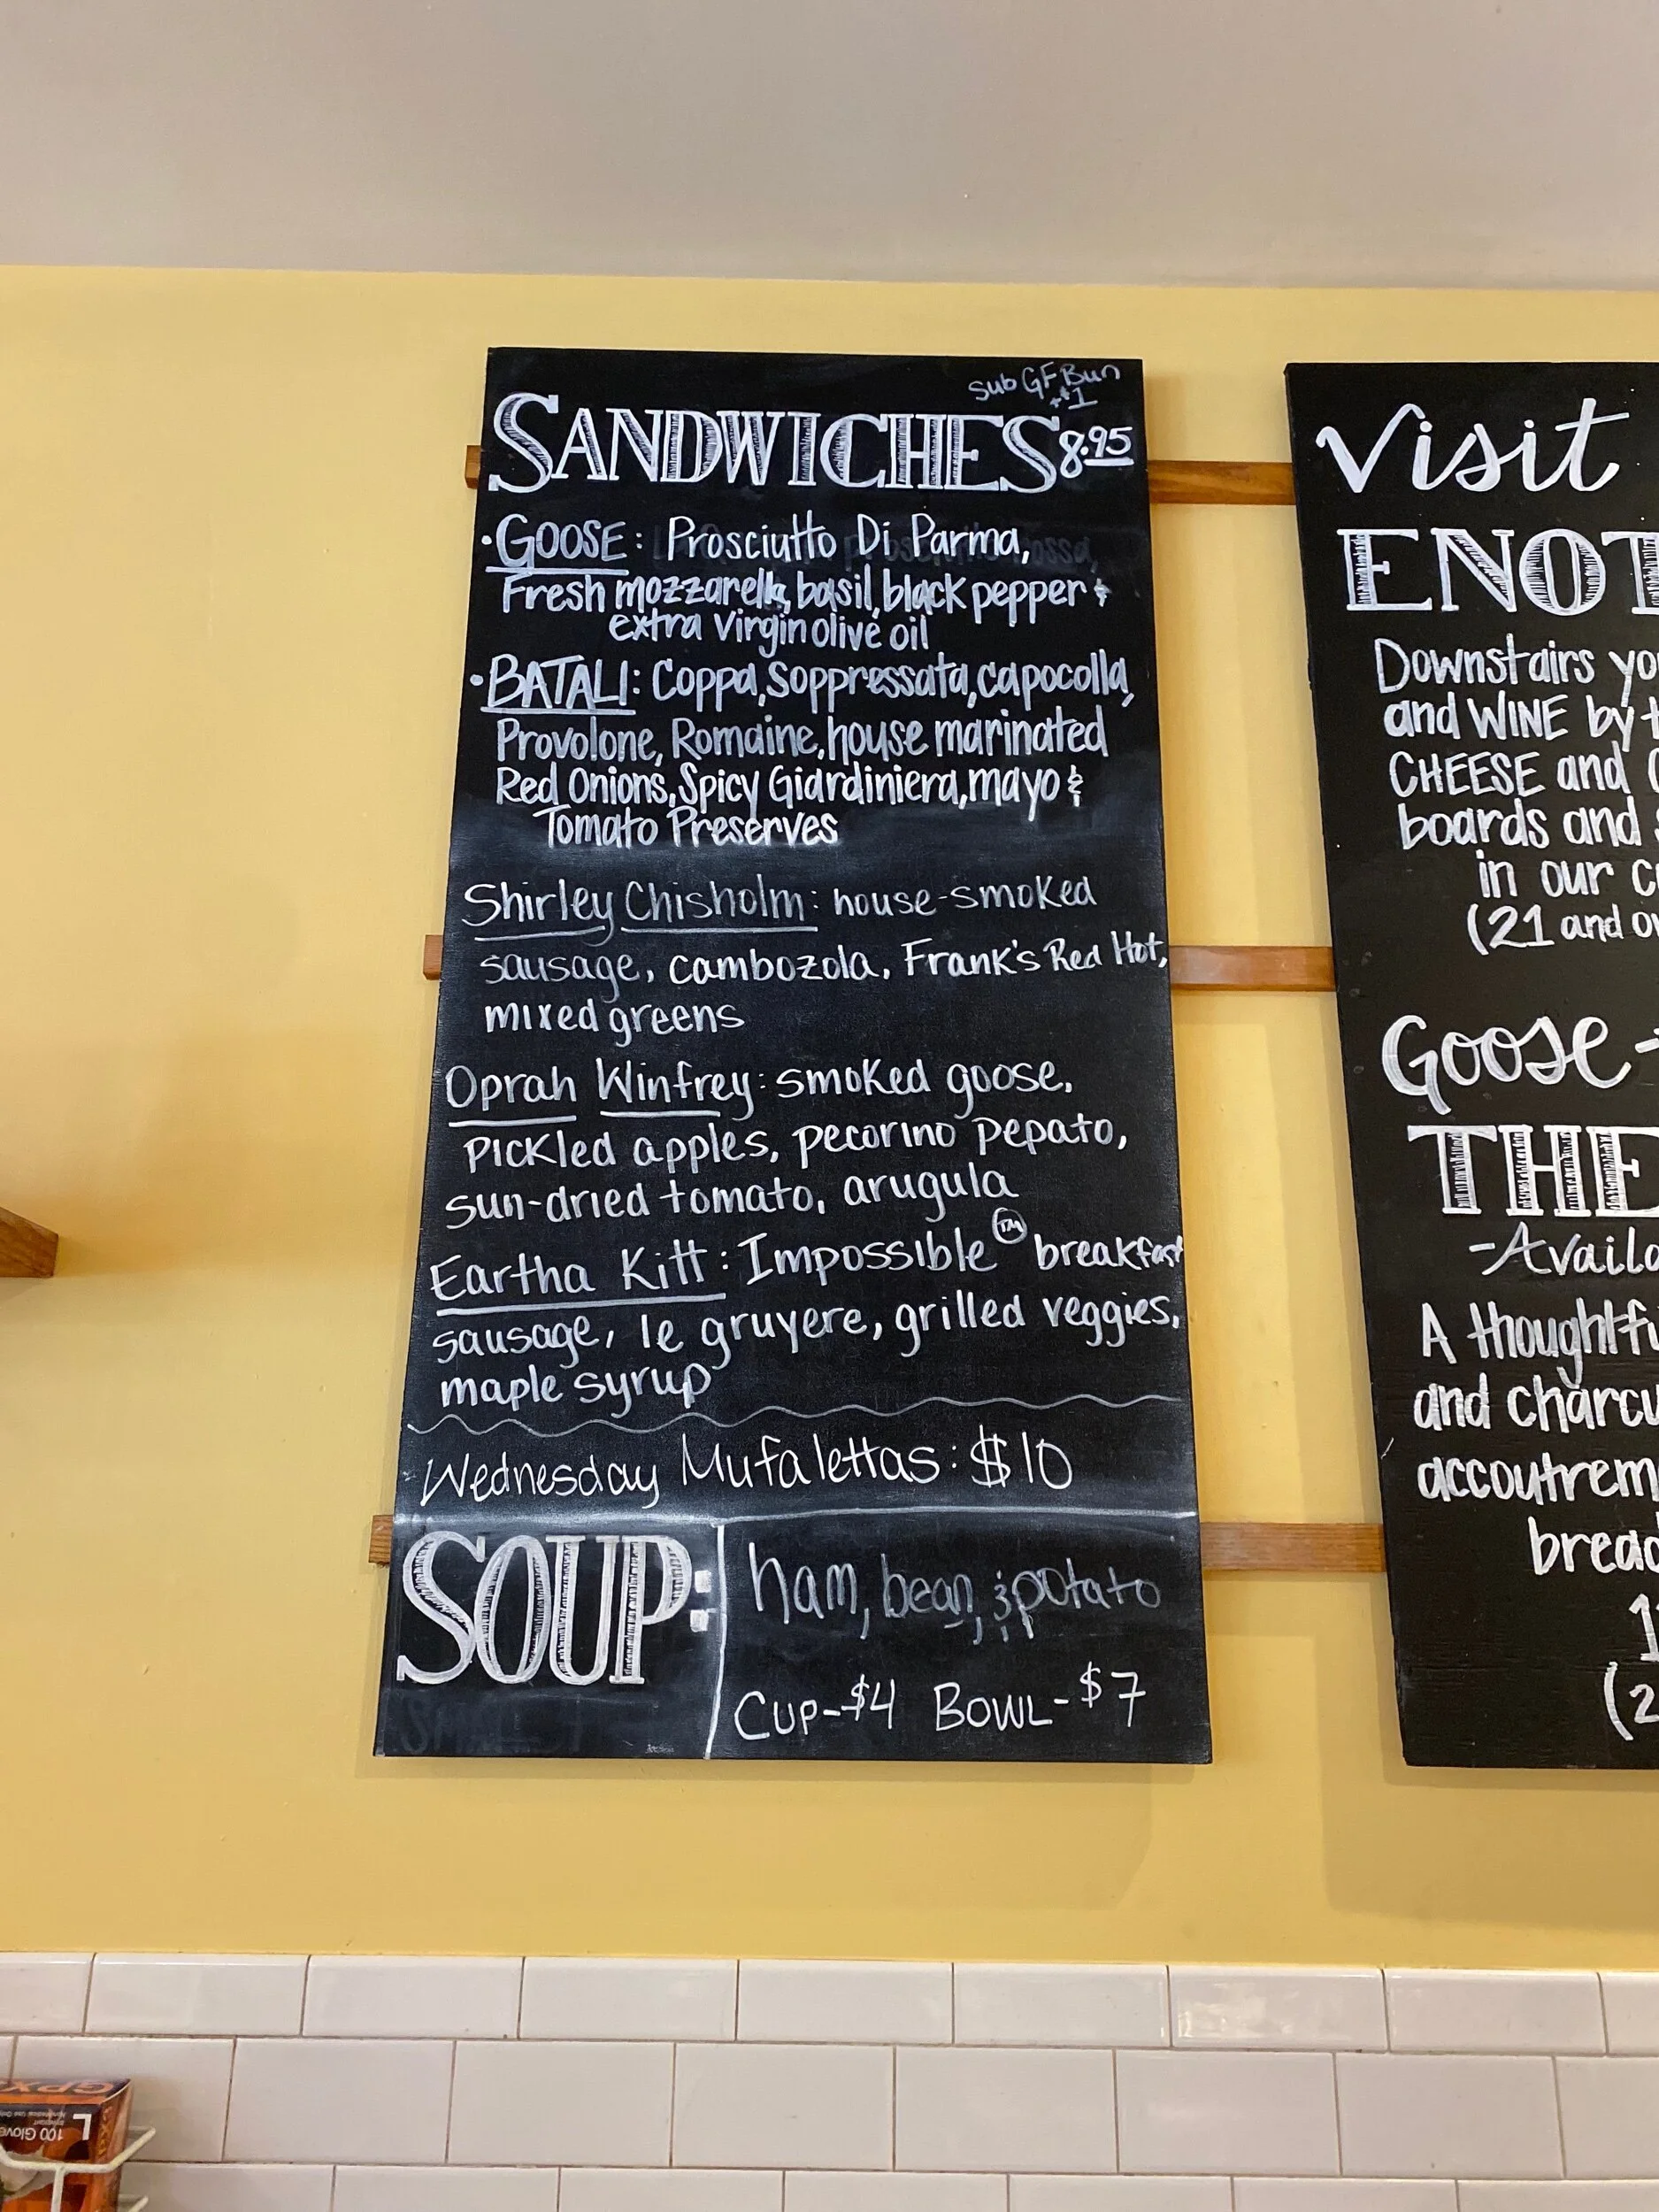 sub GF Bun
+$1
SANDWICHES 8.95
• GOOSE: Prosciutto Di Parma,
Fresh mozzarella, basil, black pepper &
extra virgin olive oil
• BATALI: Coppa, Soppressata, capocolla,
Provolone, Romaine, house marinated
Red Onions, Spicy Giardiniera, mayo &
Tomato Preserves
Shirley Chisholm: house-smoked
sausage, cambozola, Frank's Red Hot,
mixed greens
Oprah Winfrey: smoked goose,
pickled apples, pecorino pepato,
sun-dried tomato, arugula
Eartha Kitt: Impossible™ breakfast
sausage, le gruyere, grilled veggies,
maple syrup
Wednesday Mufalettas: $10
SOUP:
ham, bean, & potato
Cup-$4 Bowl-$7
Visit
ENOT
Downstairs yo
and WINE by t
CHEESE and
boards and
in our c
(21 and ov
Goose-
THE
-Availa
A thoughtfu
and charcu
accoutrem
bread
(2
GPX
L
100 Glove